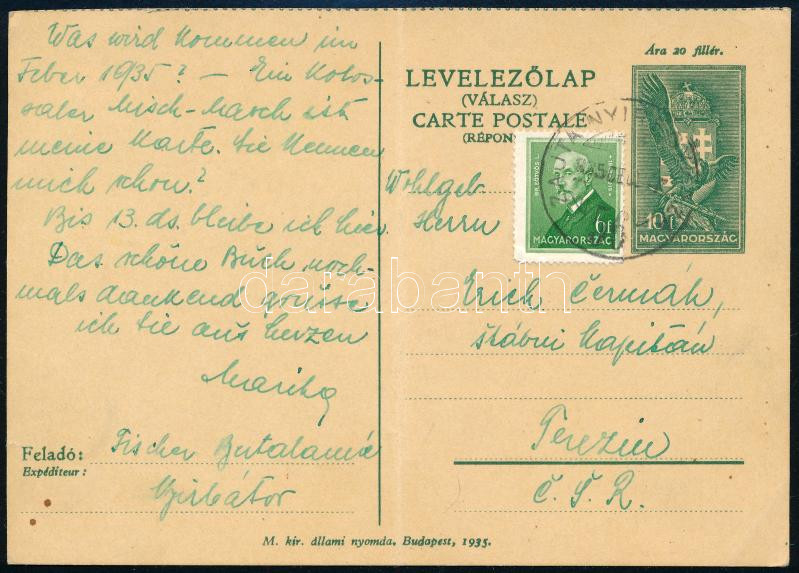 Was wird kommen im
Feber 1935? – Ein Kolos-
saler Misch-Masch ist
meine Karte. Sie kennen
mich schon?
Bis 13. ds. bleibe ich hier.
Das schöne Buch noch-
mals dankend grüsse
ich Sie aus herzen
Marika
Feladó: Fischer Bertalanné
Expéditeur:
Nyirbátor
Ára 20 fillér.
LEVELEZŐLAP
(VÁLASZ)
CARTE POSTALE
(RÉPON
BR. EÖTVÖS L.
6f
MAGYARORSZÁG
10 f
MAGYARORSZÁG
Wohlgeb.
Herrn
Erich Čermák,
štábní kapitán
Terezín
Č. S. R.
M. kir. állami nyomda, Budapest, 1935.
darabanth